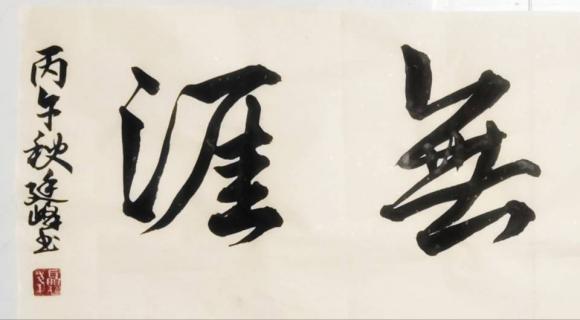 無涯
丙午秋廷峰书